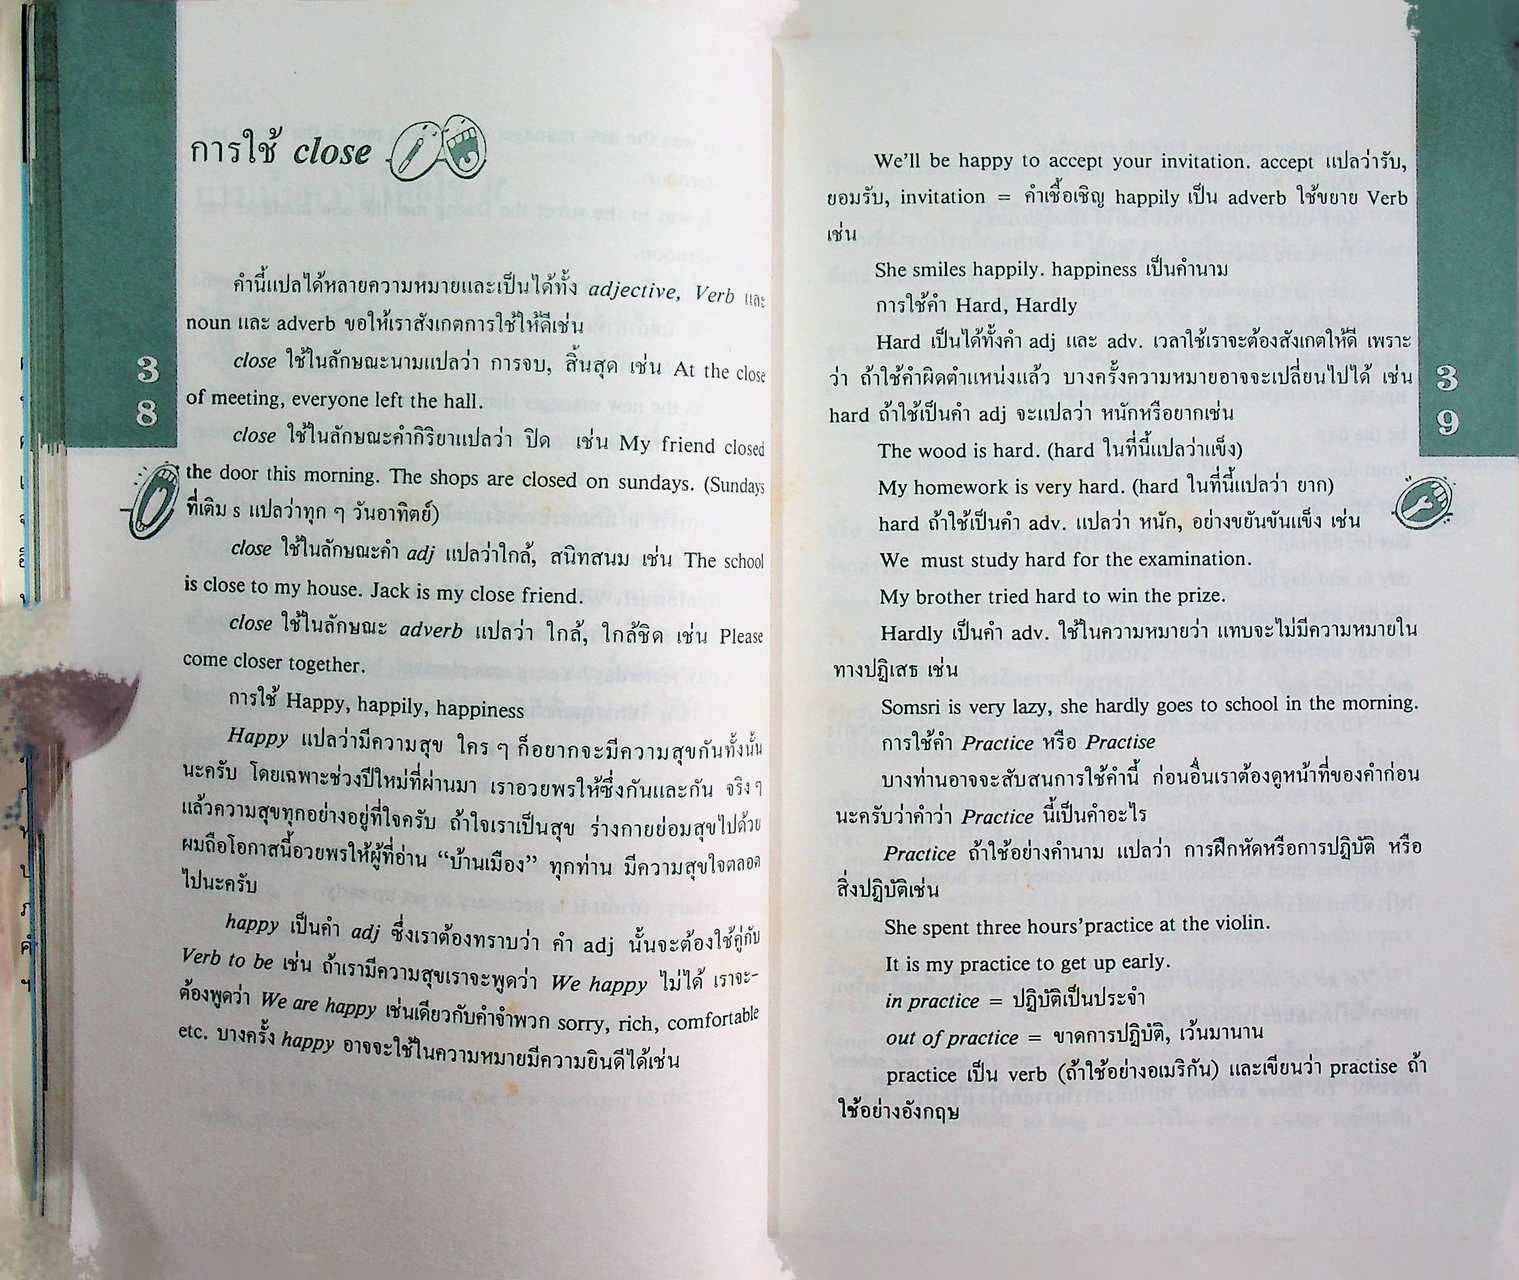 การใช้ close
คำนี้แปลได้หลายความหมายและเป็นได้ทั้ง adjective, Verb และ
noun และ adverb ขอให้เราสังเกตการใช้ให้ดีเช่น
close ใช้ในลักษณะนามแปลว่า การจบ, สิ้นสุด เช่น At the close
of meeting, everyone left the hall.
close ใช้ในลักษณะคำกิริยาแปลว่า ปิด เช่น My friend closed
the door this morning. The shops are closed on sundays. (Sundays
ที่เติม s แปลว่าทุก ๆ วันอาทิตย์)
close ใช้ในลักษณะคำ adj แปลว่าใกล้, สนิทสนม เช่น The school
is close to my house. Jack is my close friend.
close ใช้ในลักษณะ adverb แปลว่า ใกล้, ใกล้ชิด เช่น Please
come closer together.
การใช้ Happy, happily, happiness
Happy แปลว่ามีความสุข ใคร ๆ ก็อยากจะมีความสุขกันทั้งนั้น
นะครับ โดยเฉพาะช่วงปีใหม่ที่ผ่านมา เราอวยพรให้ซึ่งกันและกัน จริง ๆ
แล้วความสุขทุกอย่างอยู่ที่ใจครับ ถ้าใจเราเป็นสุข ร่างกายย่อมสุขไปด้วย
ผมถือโอกาสนี้อวยพรให้ผู้ที่อ่าน “บ้านเมือง” ทุกท่าน มีความสุขใจตลอด
ไปนะครับ
happy เป็นคำ adj ซึ่งเราต้องทราบว่า คำ adj นั้นจะต้องใช้คู่กับ
Verb to be เช่น ถ้าเรามีความสุขเราจะพูดว่า We happy ไม่ได้ เราจะ-
ต้องพูดว่า We are happy เช่นเดียวกับคำจำพวก sorry, rich, comfortable
etc. บางครั้ง happy อาจจะใช้ในความหมายมีความยินดีได้เช่น
3
8
We'll be happy to accept your invitation. accept แปลว่ารับ,
ยอมรับ, invitation = คำเชื้อเชิญ happily เป็น adverb ใช้ขยาย Verb
เช่น
She smiles happily. happiness เป็นคำนาม
การใช้คำ Hard, Hardly
Hard เป็นได้ทั้งคำ adj และ adv. เวลาใช้เราจะต้องสังเกตให้ดี เพราะ
ว่า ถ้าใช้คำผิดตำแหน่งแล้ว บางครั้งความหมายอาจจะเปลี่ยนไปได้ เช่น
hard ถ้าใช้เป็นคำ adj จะแปลว่า หนักหรือยากเช่น
The wood is hard. (hard ในที่นี้แปลว่าแข็ง)
My homework is very hard. (hard ในที่นี้แปลว่า ยาก)
hard ถ้าใช้เป็นคำ adv. แปลว่า หนัก, อย่างขยันขันแข็ง เช่น
We must study hard for the examination.
My brother tried hard to win the prize.
Hardly เป็นคำ adv. ใช้ในความหมายว่า แทบจะไม่มีความหมายใน
ทางปฏิเสธ เช่น
Somsri is very lazy, she hardly goes to school in the morning.
การใช้คำ Practice หรือ Practise
บางท่านอาจจะสับสนการใช้คำนี้ ก่อนอื่นเราต้องดูหน้าที่ของคำก่อน
นะครับว่าคำว่า Practice นี้เป็นคำอะไร
Practice ถ้าใช้อย่างคำนาม แปลว่า การฝึกหัดหรือการปฏิบัติ หรือ
สิ่งปฏิบัติเช่น
She spent three hours'practice at the violin.
It is my practice to get up early.
in practice = ปฏิบัติเป็นประจำ
out of practice = ขาดการปฏิบัติ, เว้นมานาน
practice เป็น verb (ถ้าใช้อย่างอเมริกัน) และเขียนว่า practise ถ้า
ใช้อย่างอังกฤษ
3
9